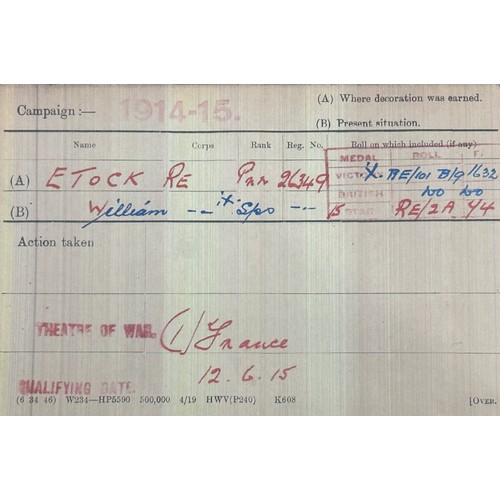 (A) Where decoration was earned.
Campaign :— 1914-15.
(B) Present situation.
Name Corps Rank Reg. No. Roll on which included (if any)
MEDAL ROLL
(A) ETOCK RE Pnr 26349 VICTORY RE/101 B/9 1632
(B) William -"- Spr -"- BRITISH DO DO
STAR RE/2A 44
Action taken
THEATRE OF WAR. (1) France
QUALIFYING DATE. 12.6.15
(6 34 46) W234—HP5590 500,000 4/19 HWV(P240) K608 [OVER.